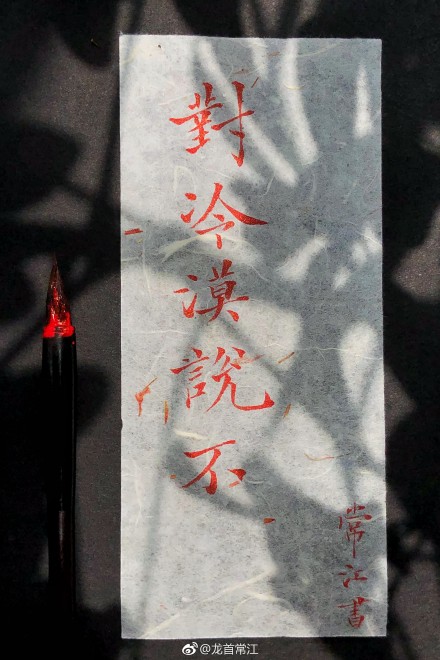 對冷漠說不
常江書
@龙首常江